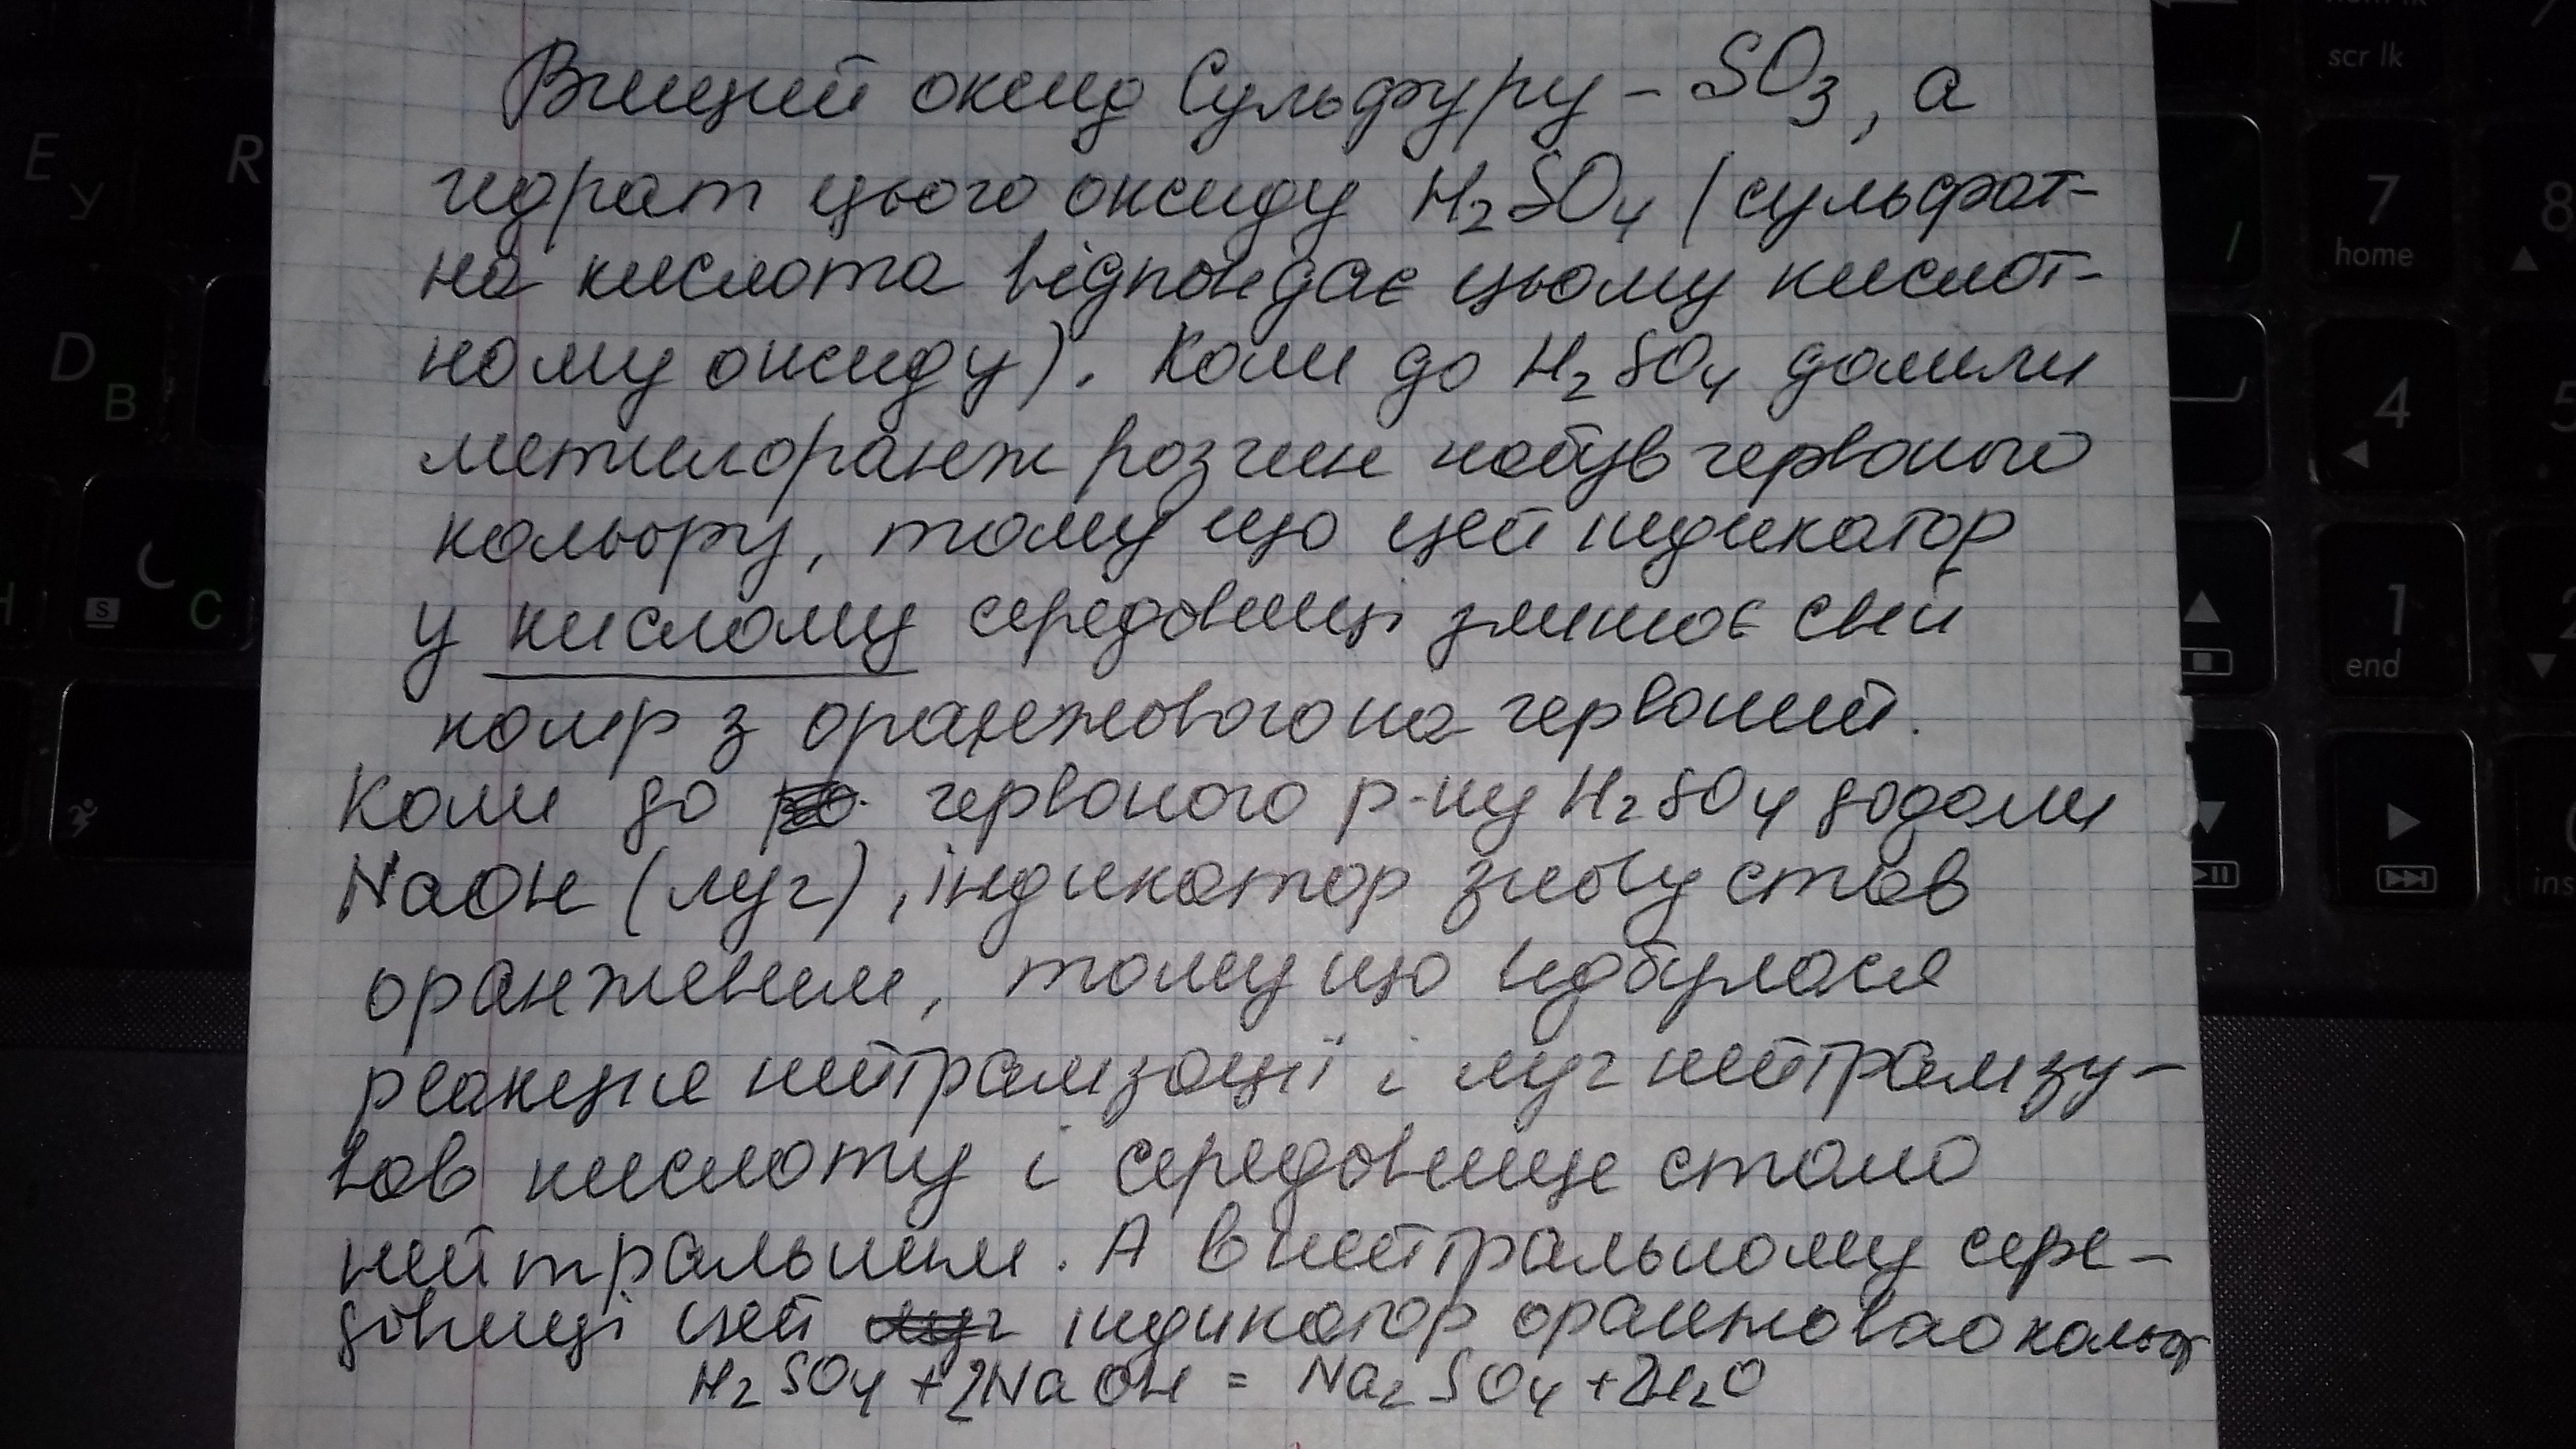 Вищий оксид Сульфуру – SO3, а
гідрат цього оксиду H2SO4 (сульфат-
на кислота відповідає цьому кислот-
ному оксиду). Коли до H2SO4 долили
метилоранж розчин набув червоного
кольору, тому що цей індикатор
у кислому середовищі змінює свій
колір з оранжового на червоний.
Коли до червоного р-ну H2SO4 додали
NaOH (луг), індикатор знову став
оранжевим, тому що відбулася
реакція нейтралізації і луг нейтралізу-
вав кислоту і середовище стало
нейтральним. А в нейтральному сере-
довищі цей індикатор оранжового
H2SO4 + 2NaOH = Na2SO4 + 2H2O
E
У
R
D
В
S
С
scr lk
7
home
8
/
4
5
1
end
ins